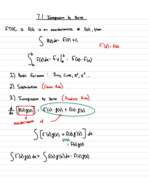 7.1 Integration by Parts
FTOC : If F(x) is an antiderivative of f(x), then
∫ f(x) dx = F(x) + C
F'(x) = f(x)
∫ f(x) dx = F(x) | = F(b) - F(a)
1) Basic Formulas : Trig, 
2) Substitution (Chain Rule)
3) Integration by Parts (Product Rule)
d/dx [f(x)g(x)] = f'(x) g(x) + f(x) g'(x)
antiderivative of
∫ [f'(x)g(x) + f(x)g'(x)] dx
= f(x)g(x)
∫ f'(x)g(x) dx + ∫ f(x)g'(x) dx = f(x)g(x)